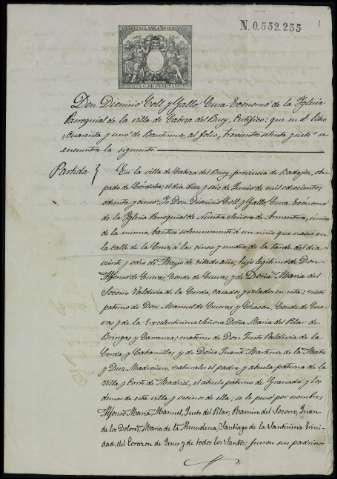 N.0.552.255
Don Dionisio Coll y Gallo Cura Ecónomo de la Iglesia
Parroquial de la villa de Cabeza del Buey, Certifico: que en el libro
cuarenta y uno de Bautismos, al folio, trescientos ochenta y siete se
encuentra la siguiente
Partida} En la villa de Cabeza del Buey, provincia de Badajoz, obis-
pado de Córdoba, el dia de Junio de mil ochocientos
ochenta y cinco: Yo Don Dionisio Coll y Gallo, Cura ecónomo
de la Iglesia Parroquial de Nuestra Señora de Armentera, única
de la misma, bauticé solemnemente á un niño que nació en
la calle de la Cruz á las cinco y media de la tarde del dia
veinte y ocho de Mayo de hijo legítimo de Don
Alfonso de Cueva y de Doña Maria del
Socorro Valdivia de la Cerda, casados y velados en
paterno de Don Manuel de Cuevas y
y de la Excelentísima Señora Doña Maria del Pilar de
y materno de Don Justo Valdivia de la
Cerda, y y de Doña Juana Martinez de la Mata
y naturales el padre y abuela paterna de la
Villa y Corte de Madrid, el abuelo paterno de Granada y los
demas de esta villa y vecinos de ella; se le puso por nombre
Alfonso Maria Manuel, Justo del Pilar, del Socorro, Juan
de los Dolores, Maria de la Almudena, Santiago de la Santísima Trini-
dad, del Corazon de Jesus y de todos los Santos; fueron sus padrinos